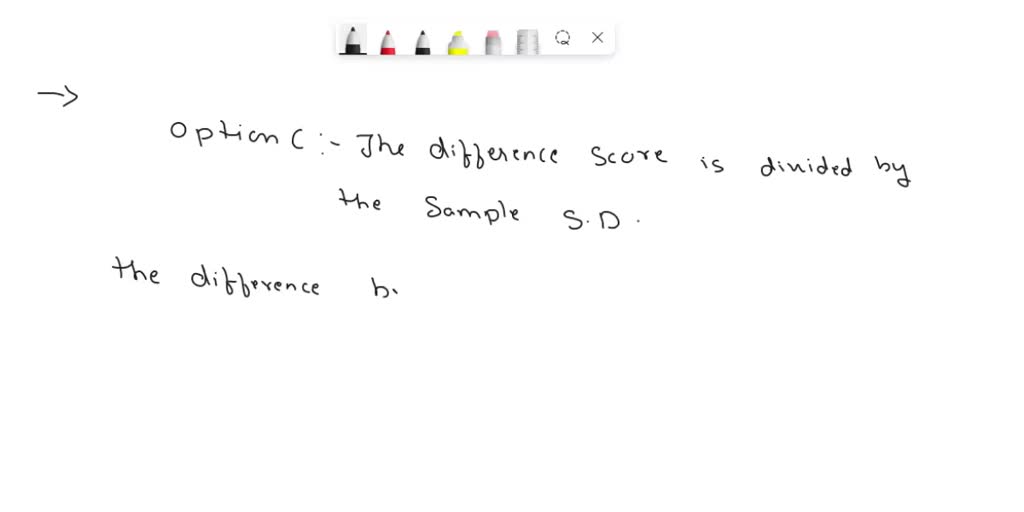 →
Option C :- The difference score is divided by
the Sample S.D.
the difference b